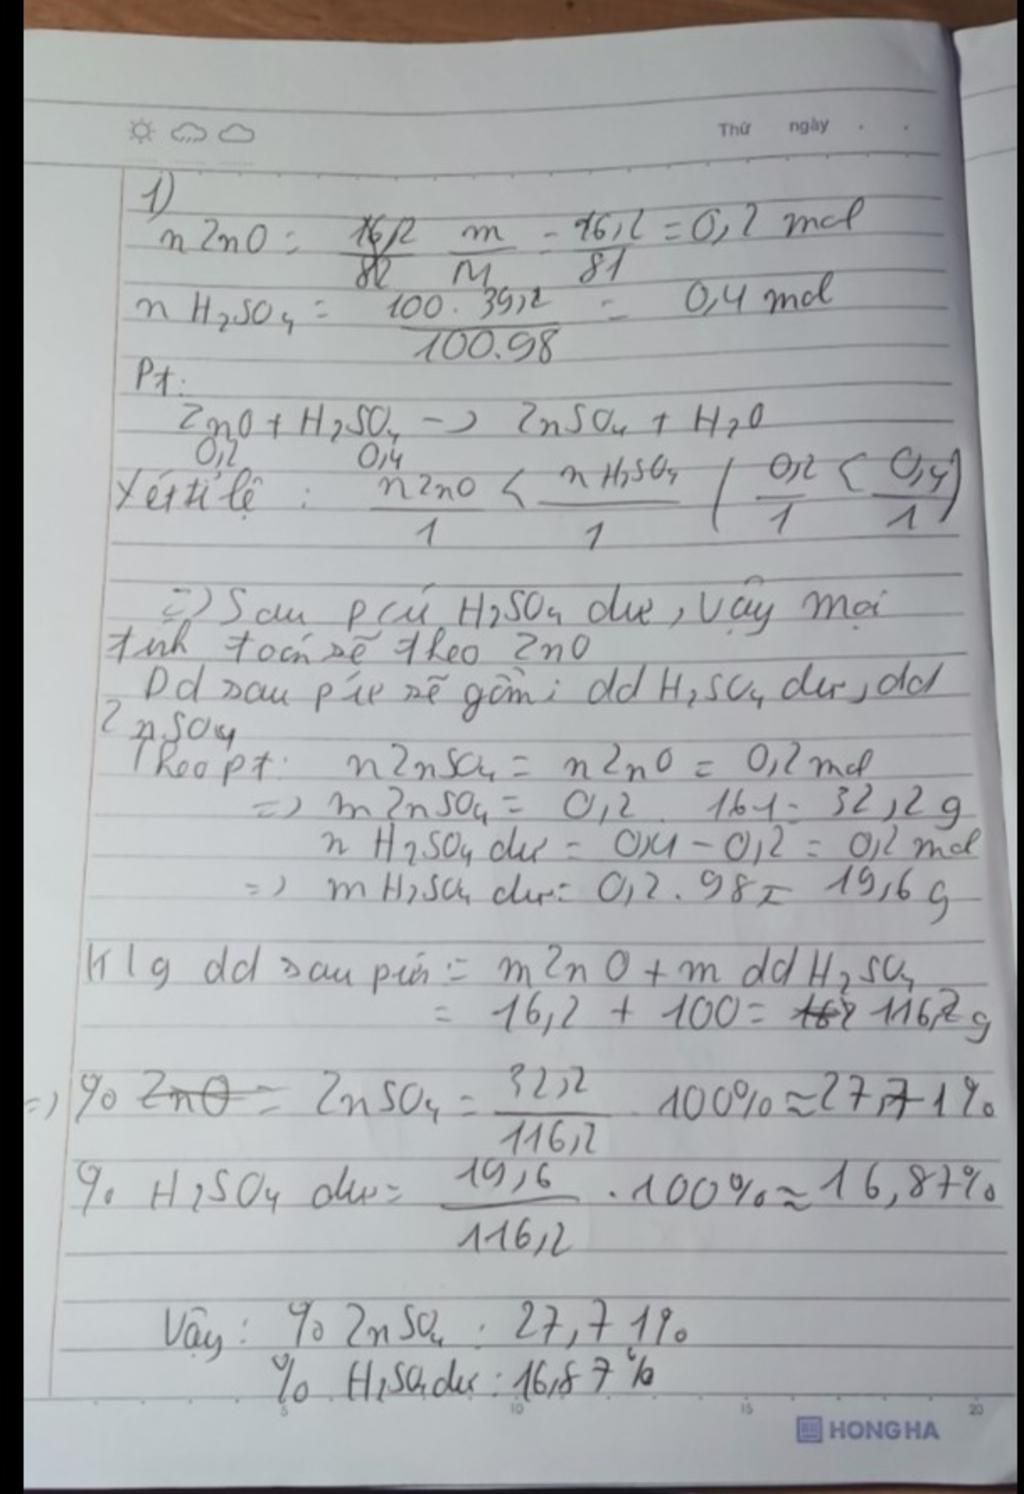 Thứ ngày . .
1)
n ZnO = 16,2/82 m/M = 16,2/81 = 0,2 mol
n H₂SO₄ = 100.39,2/100.98 = 0,4 mol
Pt:
ZnO + H₂SO₄ -> ZnSO₄ + H₂O
0,2 0,4
Xét tỉ lệ : nZnO/1 < nH₂SO₄/1 ( 0,2/1 < 0,4/1 )
=> Sau pứ H₂SO₄ dư, vậy mọi
tính toán sẽ theo ZnO
Dd sau pứ sẽ gồm: dd H₂SO₄ dư, dd
ZnSO₄
Theo pt: n ZnSO₄ = n ZnO = 0,2 mol
=> m ZnSO₄ = 0,2 . 161 = 32,2 g
n H₂SO₄ dư = 0,4 - 0,2 = 0,2 mol
=> m H₂SO₄ dư = 0,2 . 98 = 19,6 g
Klg dd sau pứ = m ZnO + m dd H₂SO₄
= 16,2 + 100 = 116,2 g
=> % ZnO = ZnSO₄ = 32,2/116,2 . 100% ≈ 27,71%
% H₂SO₄ dư = 19,6/116,2 . 100% ≈ 16,87%
Vậy: % ZnSO₄ : 27,71%
% H₂SO₄ dư : 16,87%
5 10 15 20
HONG HA